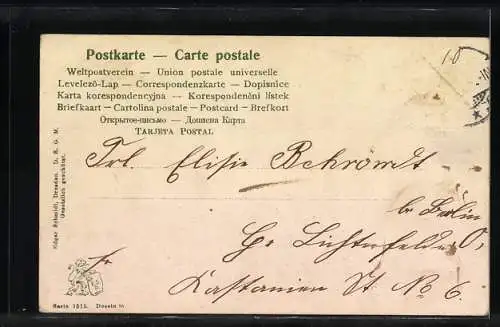 Postkarte — Carte postale
Weltpostverein — Union postale universelle
Levelezö-Lap — Correspondenzkarte — Dopisnice
Karta korespondencyjna — Korespondenční lístek
Briefkaart — Cartolina postale — Postcard — Brefkort
Открытое-письмо — Дописна Карта
TARJETA POSTAL
10
Frl. Elise Behrendt
b. Berlin
Gr. Lichterfelde O,
fr
Kastanien St. No 6.
Edgar Schmidt, Dresden. D. R. G. M.
Gesetzlich geschützt.
Serie 1515. Dessin